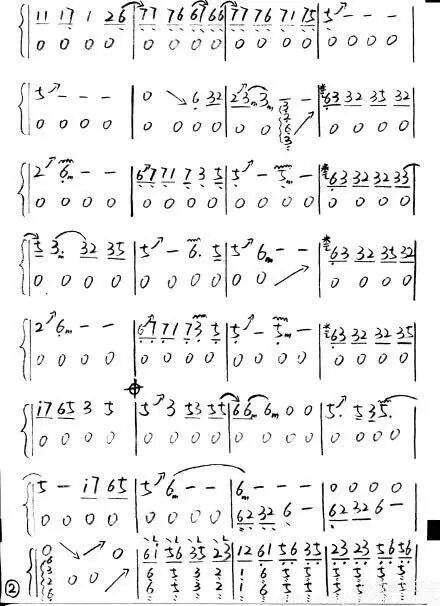 11 17 1 26 | 77 76 67 66 | 77 76 71 75 | 5 - - -
0 0 0 0 | 0 0 0 0 | 0 0 0 0 | 0 0 0 0
5 - - - | 0 6 32 | 2 3m 3m - | 63 32 35 32
0 0 0 0 | 0 0 0 0 | 0 0 0 | 0 0 0 0
2 6m - - | 67 71 7 3 5 | 5 - 5m - | 63 32 32 35
0 0 0 0 | 0 0 0 0 | 0 0 0 0 | 0 0 0 0
5 3. 32 35 | 5 - 6. 5 | 5 6m - - | 63 32 35 32
0 0 0 0 | 0 0 0 0 | 0 0 | 0 0 0 0
2 6m - - | 67 71 73 5 | 5 - 5m - | 63 32 32 35
0 0 0 0 | 0 0 0 0 | 0 0 0 0 | 0 0 0 0
i7 65 3 5 | 5 3 53 35 | 66m 6m 0 0 | 5. 5 35.
0 0 0 0 | 0 0 0 0 | 0 0 0 0 | 0 0 0 0
5 - i7 65 | 5 6m - - | 6m - - - | 0 0 0 0
0 0 0 0 | 0 0 0 0 | 62 32 6 - | 62 32 6 -
0 0 | 61 56 35 23 | 12 61 56 35 | 23 23 56 56
0 0 | 6 5 3 2 | 1 6 5 3 | 5 5 5 5
②